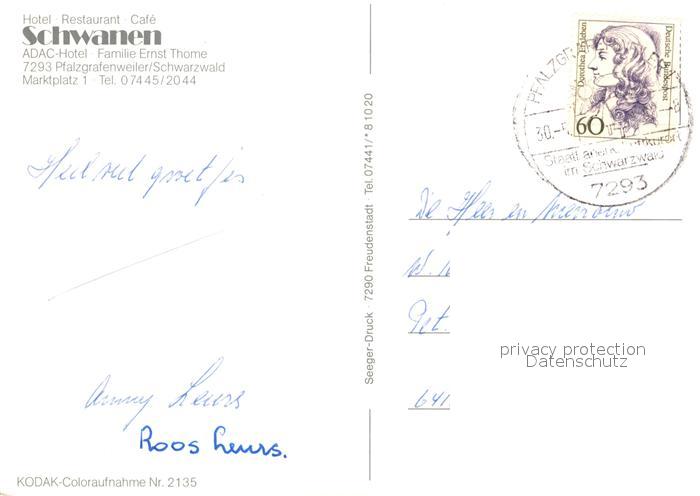 Hotel · Restaurant · Café
Schwanen
ADAC-Hotel · Familie Ernst Thome
7293 Pfalzgrafenweiler/Schwarzwald
Marktplatz 1 · Tel. 07445/2044
Heel veel groetjes
Anny Leurs
Roos Leurs.
KODAK-Coloraufnahme Nr. 2135
Seeger-Druck · 7290 Freudenstadt · Tel. 07441/*81020
Dorothea Erxleben
Deutsche Bundespost
60
30.-5
im Schwarzwald
7293
De Heer en Mevrouw
641
privacy protection
Datenschutz